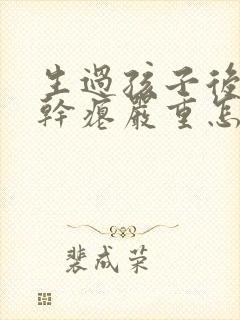 生過孩子後
幹瘪嚴重怎
裴成荣